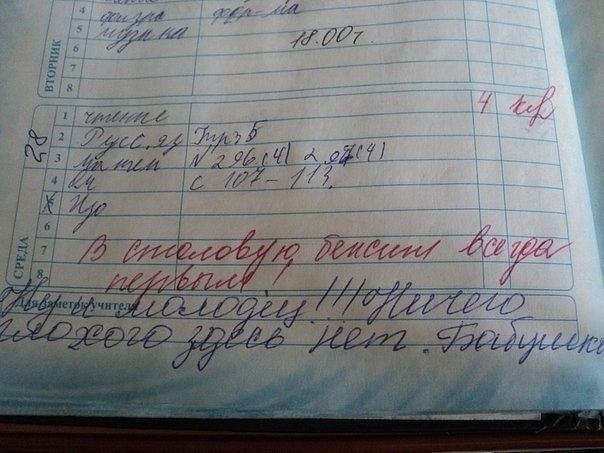 4 физ-ра форма
5 музыка 18.00г.
6
7
8
ВТОРНИК
1 чтение 4
2 Русс. яз Упр 5
3 матем N 296.(4) 297(4)
4 с 107-113.
5 Изо
6
7 В столовую бежит всегда
8 первым!
28
СРЕДА
Для заметок учителя
Ну и молодец!!! Ничего
плохого здесь нет. Бабушка